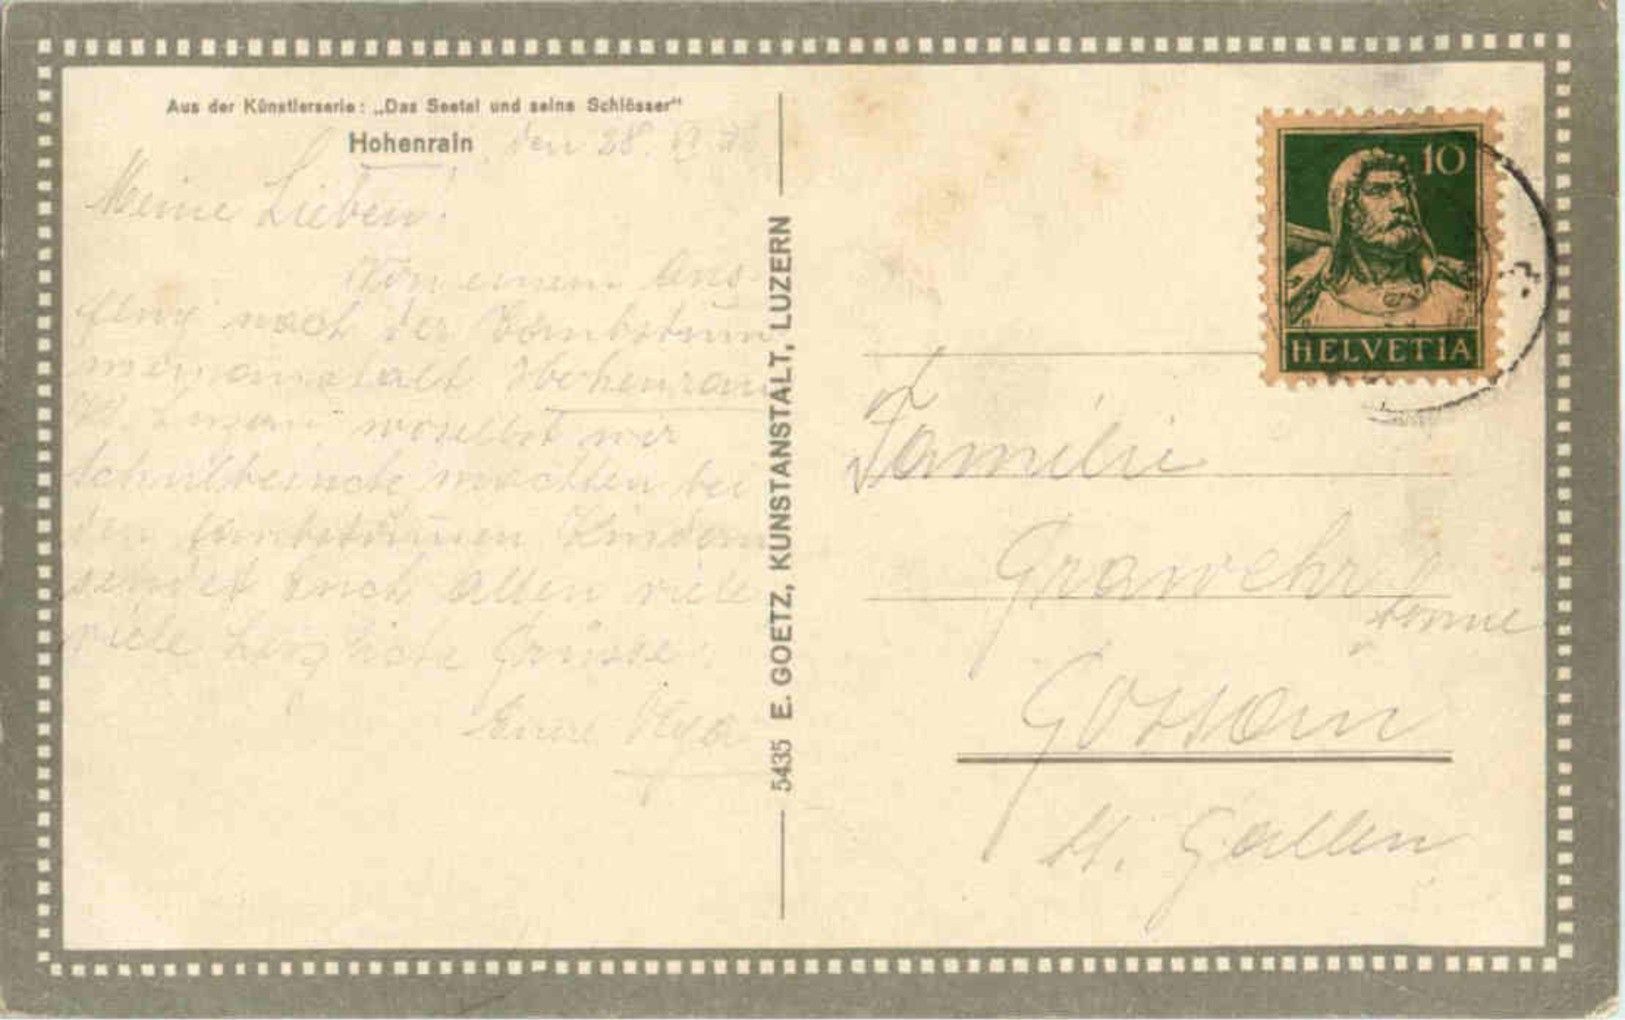 Aus der Künstlerserie: „Das Seetal und seine Schlösser"
Hohenrain, den 28. VI
Meine Lieben!
Von einem Aus-
flug nach der Taubstum
menanstalt Hohenrain
Kt. Luzern, woselbst wir
Schulbesuche machten bei
den taubstummen Kindern
sendet Euch allen viele
viele herzliche Grüsse
Eure
5435 E. GOETZ, KUNSTANSTALT, LUZERN
10
HELVETIA
Familie
Grawehr
Gossau
St. Gallen